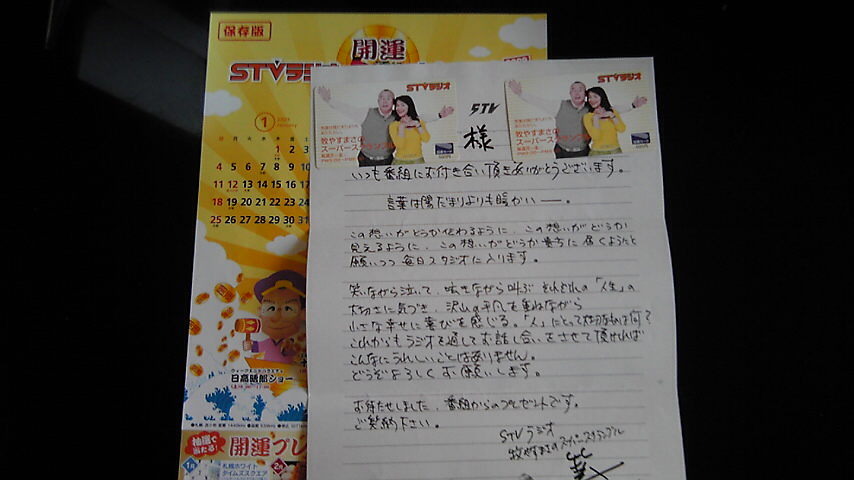 保存版
開運
STVラジオ
1
1 2 3
4 5 6 7 8 9
11 12 13 14 15 16
18 19 20 21 22 23
25 26 27 28 29 30 31
日高晤郎ショー
抽選で当たる!
開運プレ
1月
札幌ホワイト
タイムズスクエア
2月
STVラジオ
牧やすまさの
スーパースクランブル
STVラジオ
牧やすまさの
スーパースクランブル
STV
様
いつも番組にお付き合い頂きありがとうございます。
言葉は陽だまりよりも暖かい――。
この想いがどうか伝わるように、この想いがどうか
見えるように、この想いがどうか貴方に届くようにと
願いつつ毎日スタジオに入ります。
笑いながら泣いて、呟きながら叫ぶ それぞれの「人生」の
大切さに気づき、沢山の平凡を重ねながら
小さな幸せに喜びを感じる。「人」にとって大切なものは何?
これからもラジオを通してお話し合いをさせて頂ければ
こんなにうれしいことはありません。
どうぞよろしくお願いします。
お待たせしました、番組からのプレゼントです。
ご笑納下さい。
STVラジオ
牧やすまさのスーパースクランブル